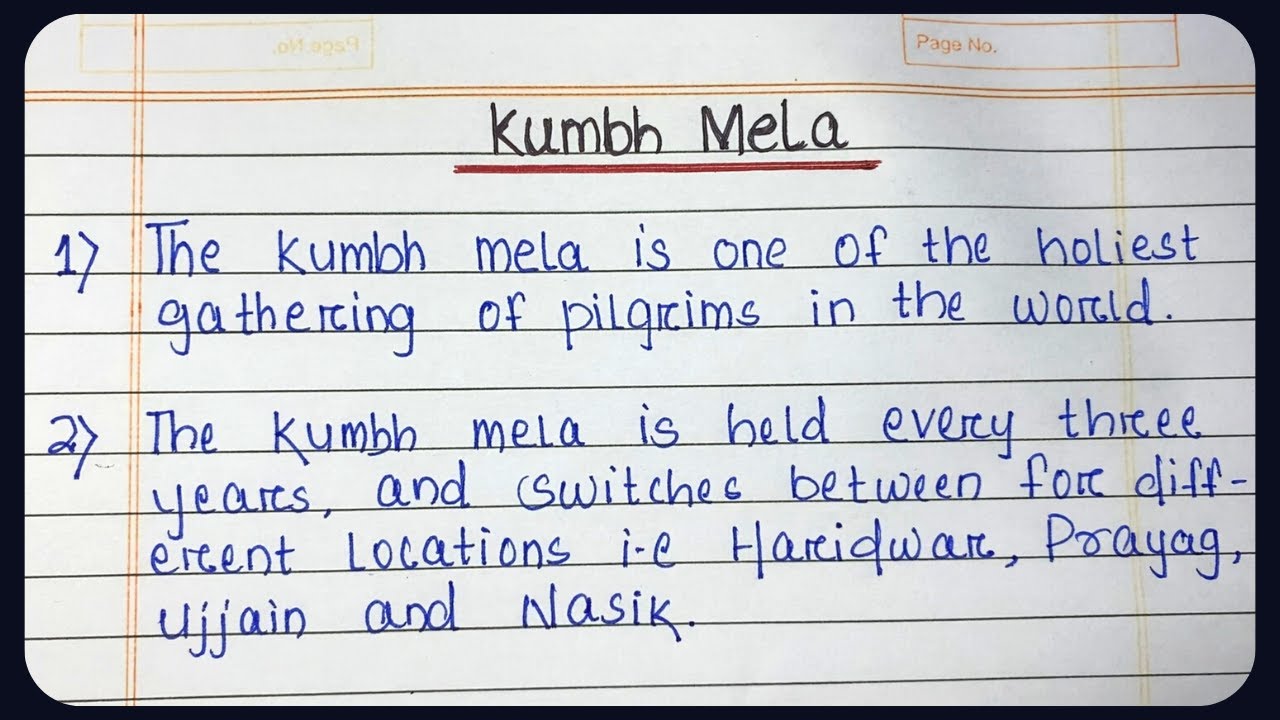 Page No.
Page No.
Kumbh Mela
1) The Kumbh mela is one of the holiest
gathering of pilgrims in the world.
2) The Kumbh mela is held every three
years, and switches between for diff-
erent Locations i-e Haridwar, Prayag,
Ujjain and Nasik.